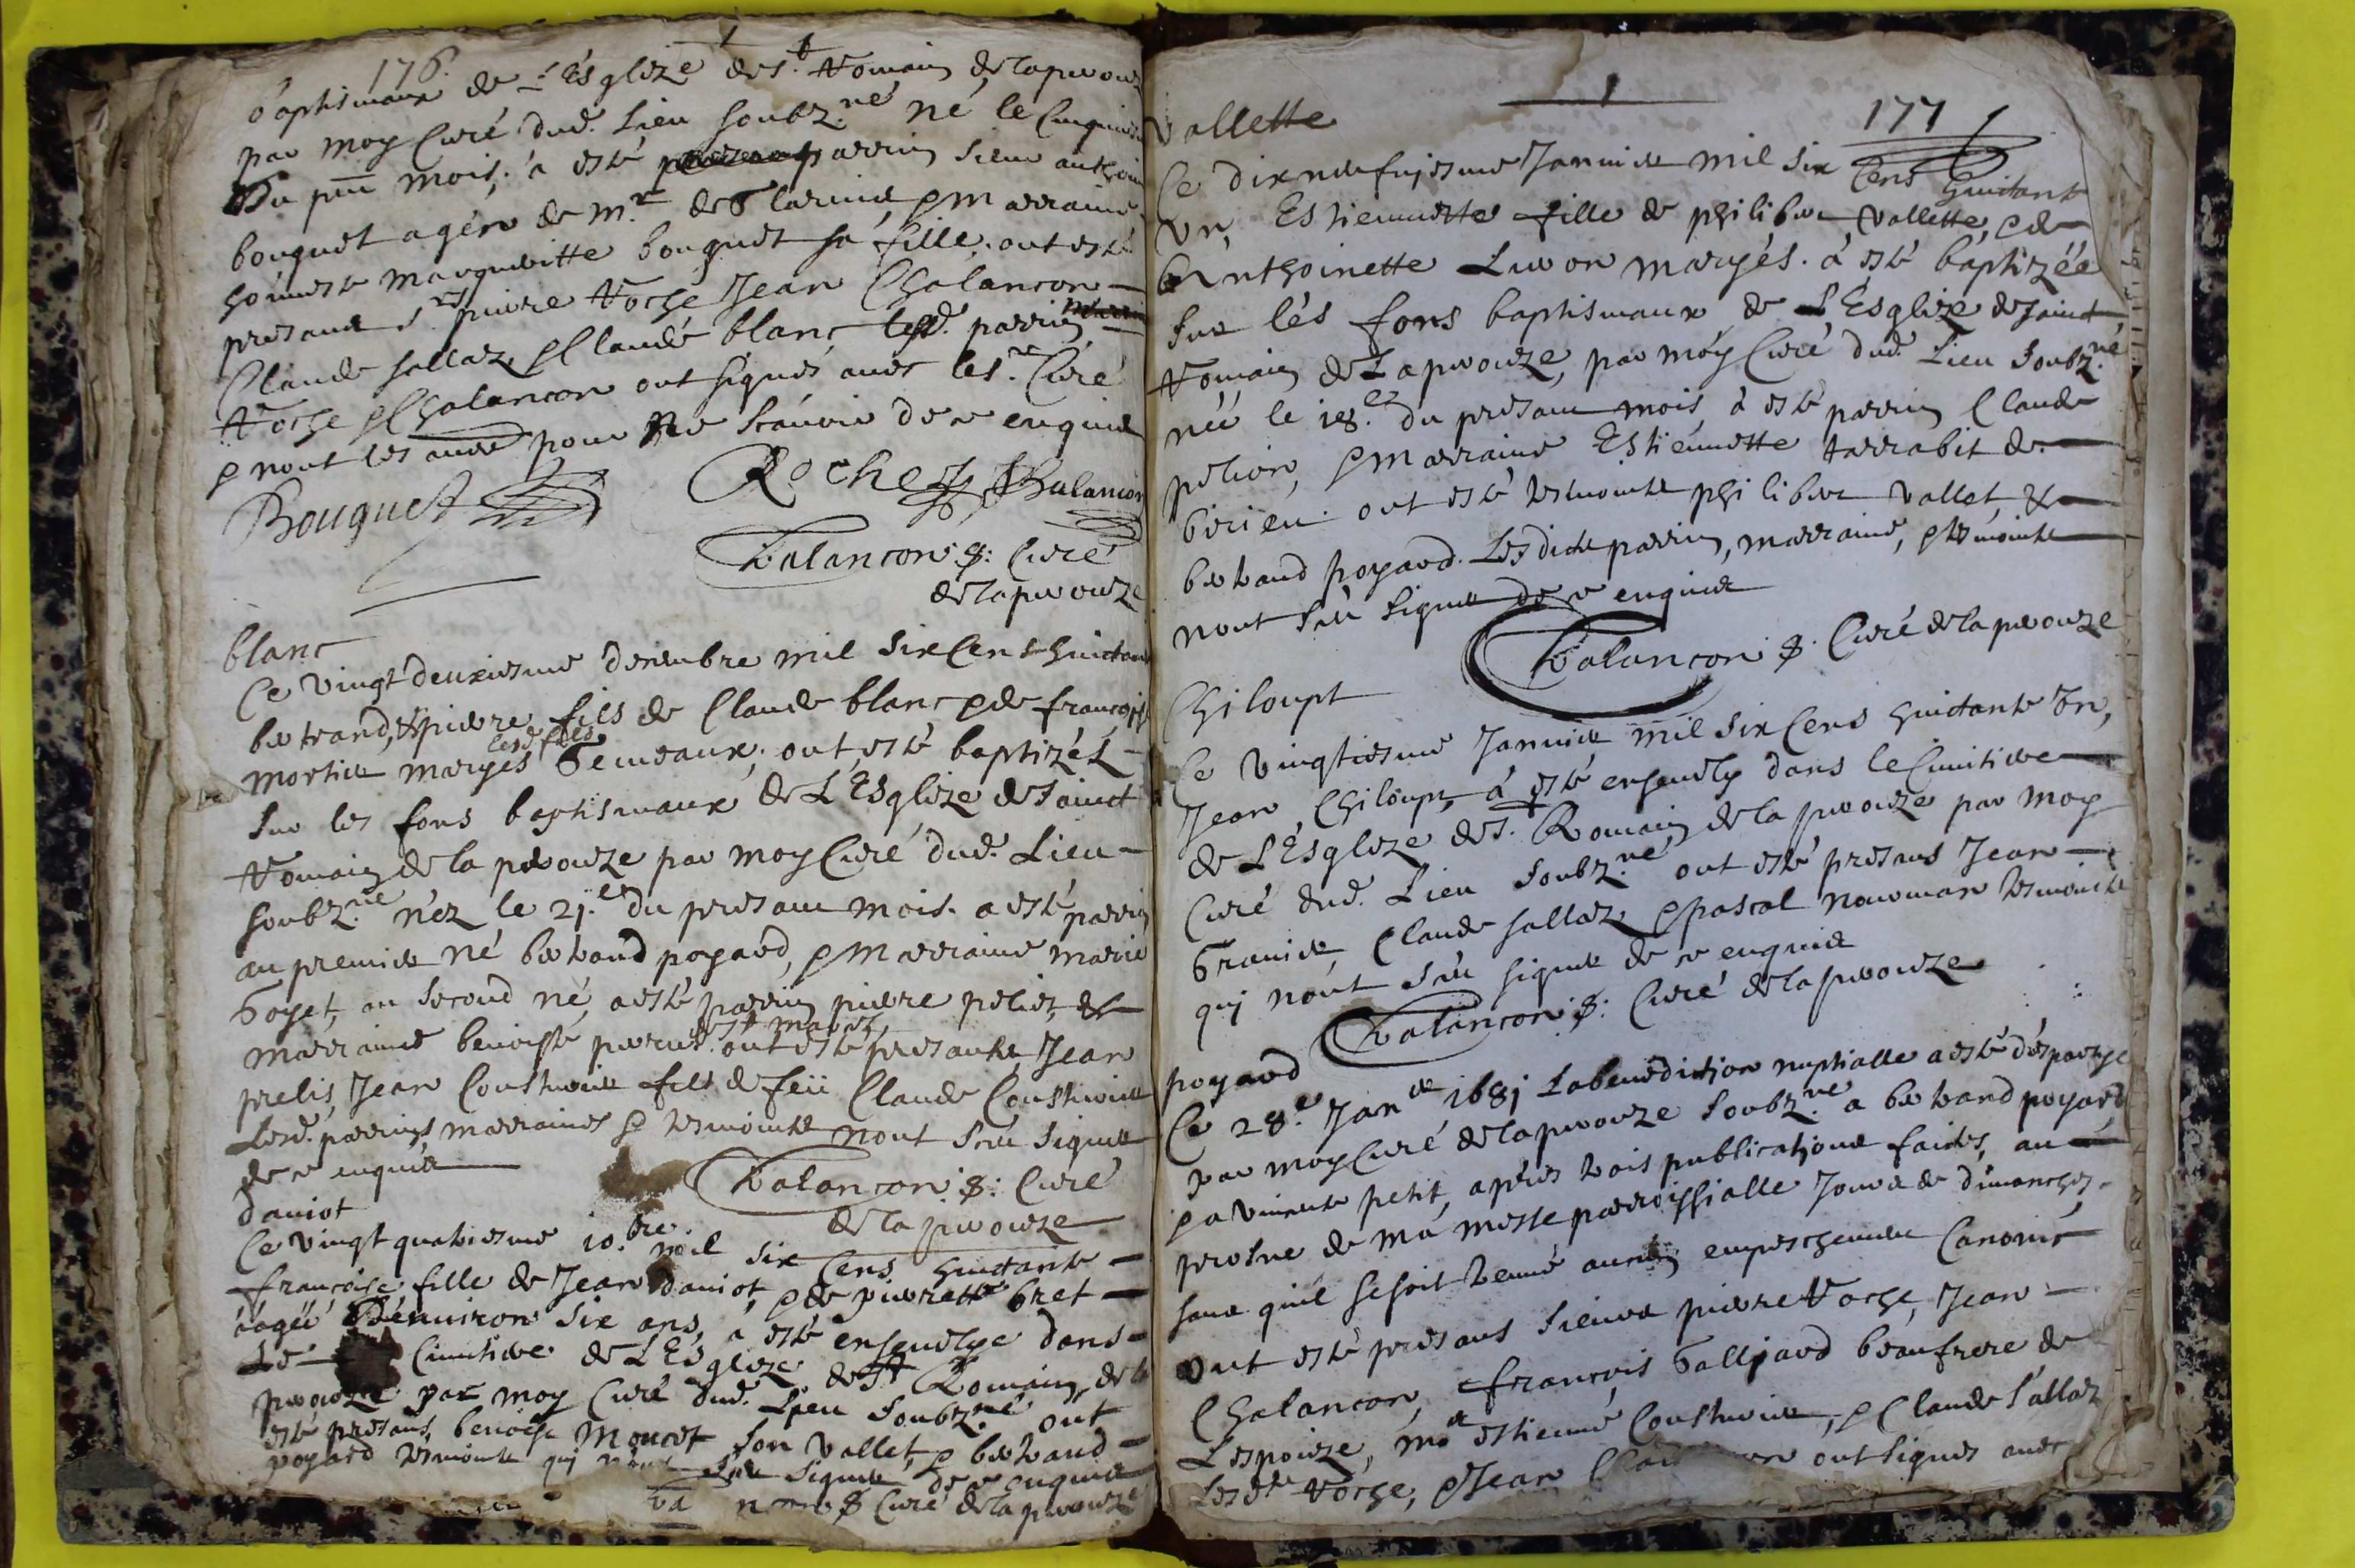 176.
baptismaux de L'Esglize de S.t Romain de laperouze
par moy Curé dud. Lieu soubz.né né le Cinquie
Du pnt mois; a esté parrin sieur anthoin
bouquet agén de M.r de & marraine
honneste margueritte bouquet sa fille, ont esté
presans S.rs pierre Roche Jean Chalancon
Claude sallaz, & Claude blanc lesd. parrin
Roche & Chalancon ont signés avec le S.r Curé
& nont les autres pour Ne scauoir de ce enquis
Bouquet Roche JChalancon
Chalancon p: Curé
de laperouze
blanc
Ce vingt deuxiesme decembre mil six Cens huictante
bertrand, & pierre fils de Claude blanc & de francoise
mortier maryés lesd. fils Gemeaux, ont esté baptizés
sur les fons baptismaux de L'Esglize de sainct
Romain de la perouze par moy Curé dud. Lieu
soubz.né néz le 21.e du presant mois. a esté parrin
au premier né bertrand poyard, & Marraine marie
Goyet, au second né, a esté parrin pierre peliet, &
marraine benoiste ont esté presants, Jean
prelis, Jean Cousturier fils de feü Claude Cousturier
Lesd. parrins, marraines & tesmoints nont sceu signer
de ce enquis
Chalancon p: Curé
de la perouze
daniot
Ce vingt quatriesme 10.bre mil six Cens huictante
francoise fille de Jean daniot, & de pierrette bret
aagée D'enuiron six ans, a esté enseuelye dans
Le Cimitiere de L'Esglize de S.t Romain de la
perouze par moy Curé dud. Lieu soubz.né ont
esté presans, benoist Moncet son vallet, & bertrand
poyard tesmoints qui nont sceu signer de ce enquis
p Curé de la perouze
177
Vallette
Ce dixneufuiesme Januier mil six Cens huictante
Vn, Estiennette fille de philiber Vallette, & de
Anthoinette Liuon maryés. à esté baptizée
sur lés fons baptismaux de L'Esglize de sainct
Romain de Laperouze, par móy Curé dud. Lieu soubz.né
née le 18.e du presant mois, à esté parrin Claude
pelion, & Marraine Estiennette tarrabit de
birieu. ont esté tesmoints philiber vallet, &
bertrand poyard. Lesdicts parrin, marraine, & tesmoints
nont sceu signer de ce enquis
Chalancon p. Curé de la perouze
Chiloupt
Ce vingtiesme Januier mil six Cens huictante Vn,
Jean Chiloupt, à esté enseuely dans le Cimitiere
de L'Esglize de S.t Romain de la perouze par moy
Curé dud. Lieu soubz.né ont esté presans Jean
Granier, Claude sallaz, & pascal nouuman tesmoints
qui nont sceu signer de ce enquis
Chalancon p: Curé de la perouze
poyard
Ce 28.e Jan.er 1681 La benediction nuptialle a esté desparye
par moy Curé de laperouze soubz.né a bertrand poyard
& a vincente petit, aprés trois publications faictes, au
prosne de ma messe parroissialle Jours de dimanches,
sans quil se soit treuué aucun empeschement Canoniè
ont esté presans sieurs pierre Roche, Jean
Chalancon, francois Galliard beaufrere de
Lespouze, m.e estienne Cousturier, & Claude sallaz
Lesd.ts Roche, & Jean ont signés auec